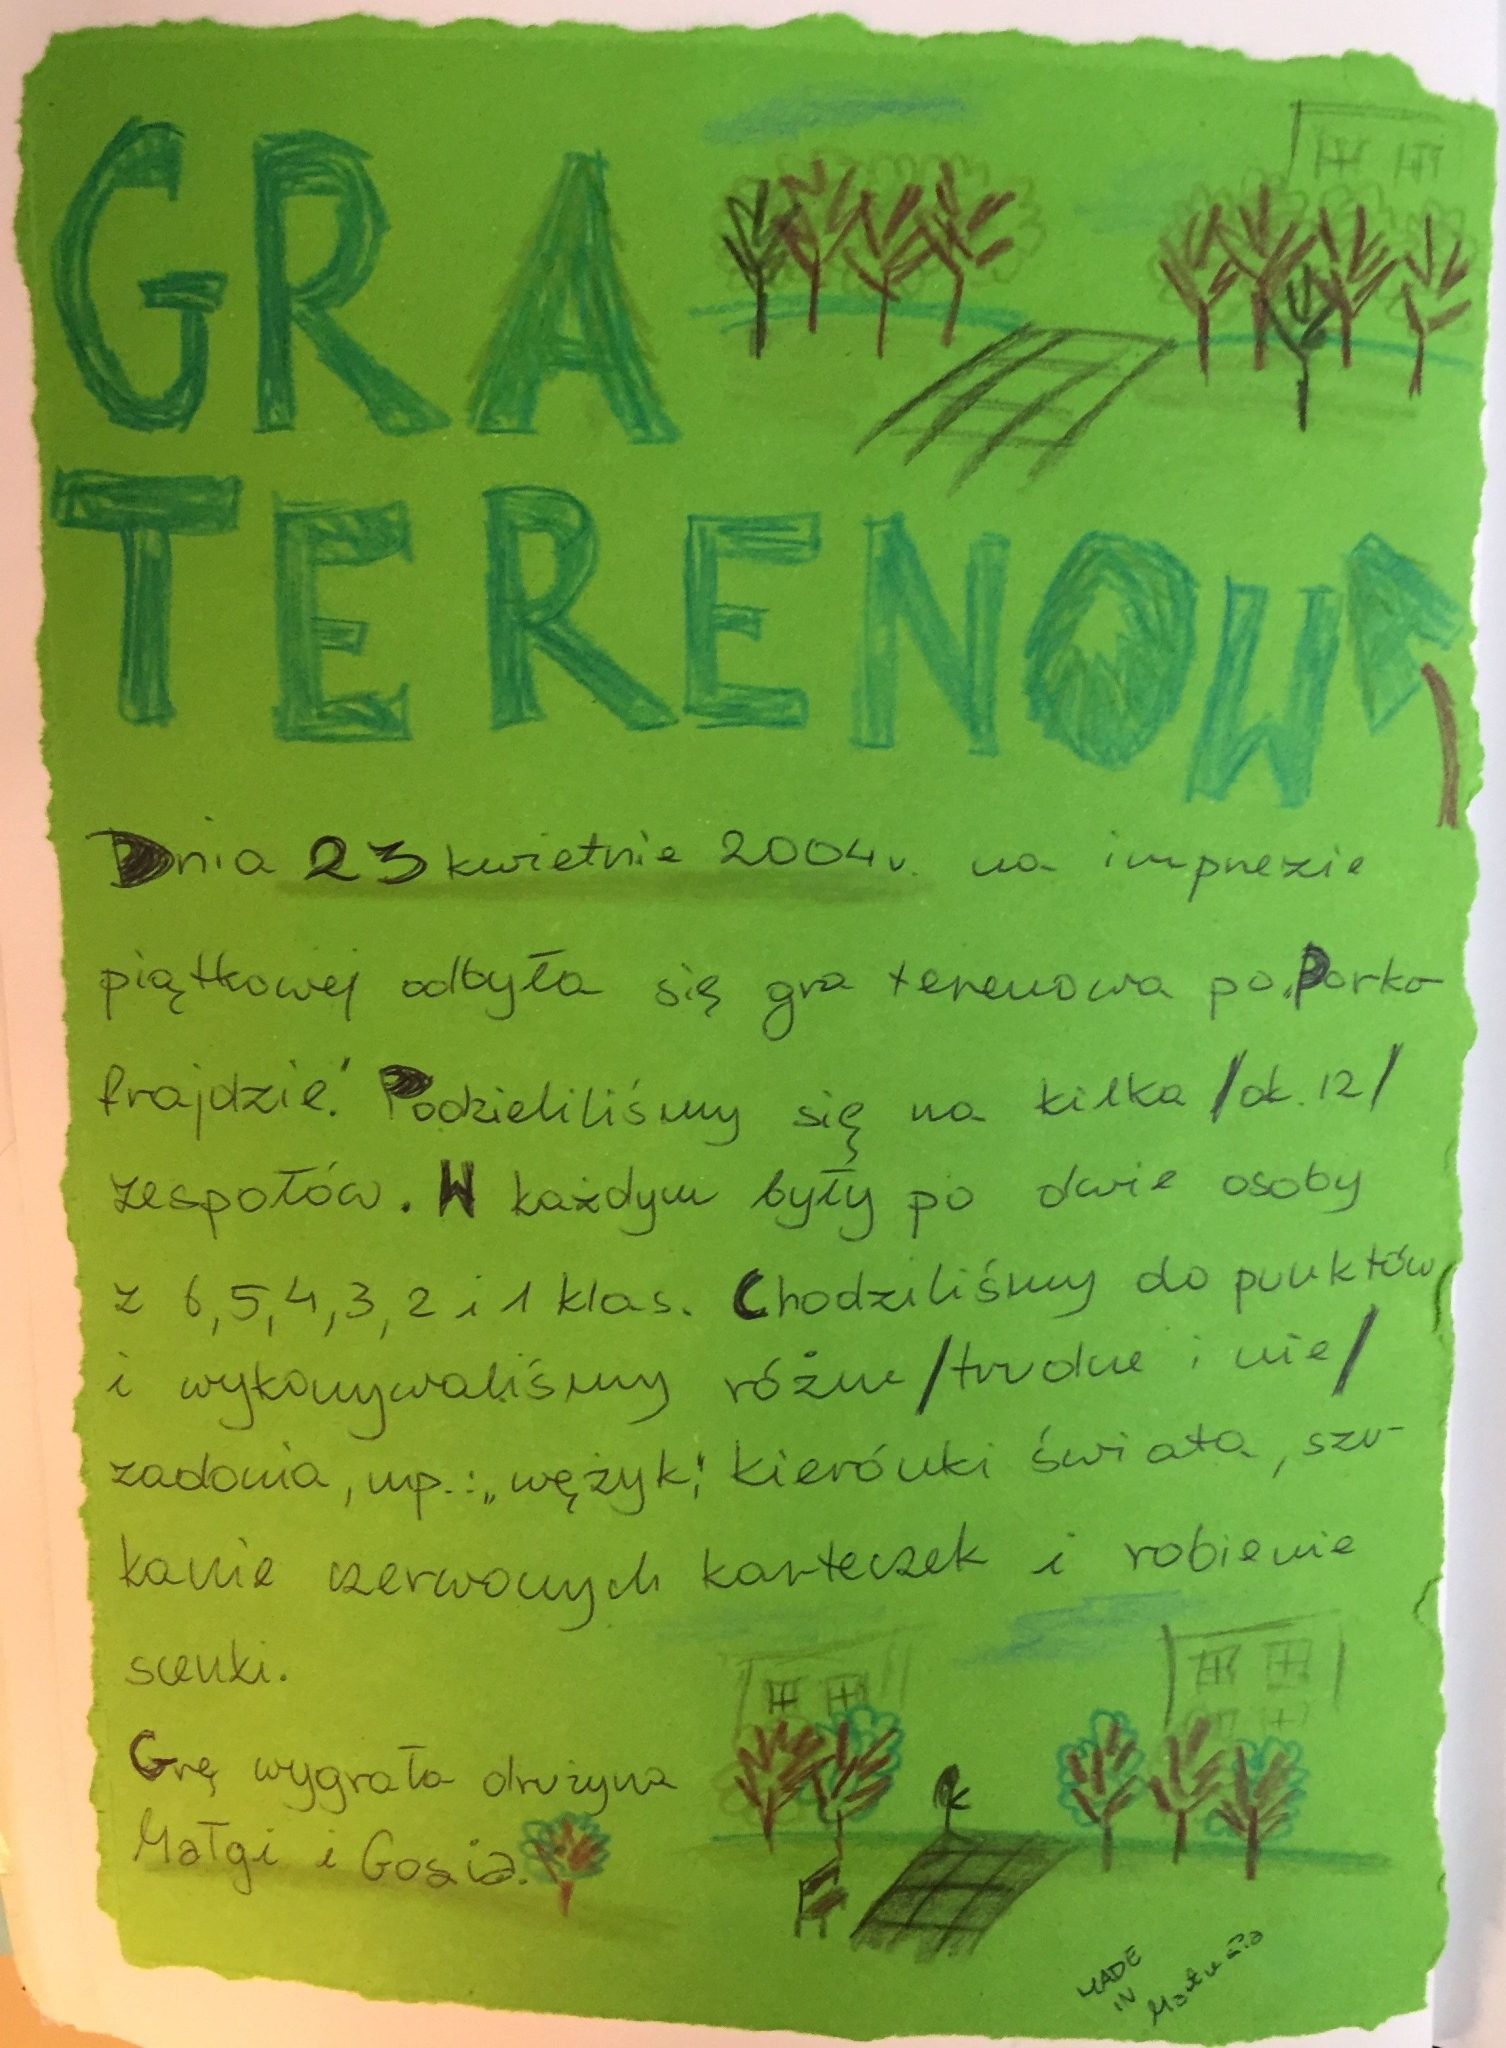 GRA
TERENOWA
Dnia 23 kwietnie 2004r. na imprezie
piątkowej odbyła się gra terenowa po „Parko
frajdzie". Podzieliliśmy się na kilka /ok. 12/
zespołów. W każdym były po dwie osoby
z 6, 5, 4, 3, 2 i 1 klas. Chodziliśmy do punktów
i wykonywaliśmy różne /trudne i nie/
zadania, np.: „wężyk", kierónki świata, szu-
kanie czerwonych karteczek i robienie
scenki.
Grę wygrała drużyna
Małgi i Gosia.
MADE
IN